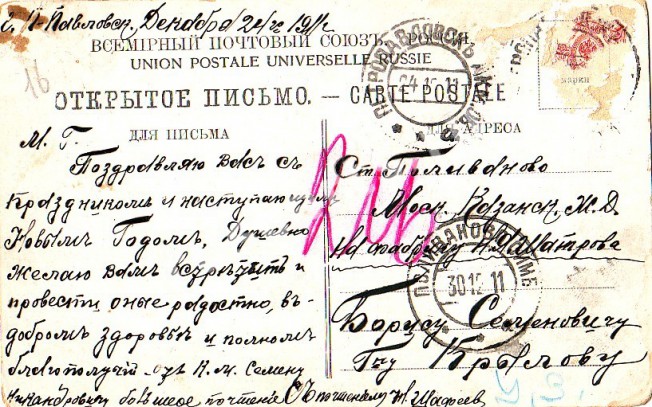 Павловск, Декабря 24го 1911г
ВСЕМІРНЫЙ ПОЧТОВЫЙ СОЮЗЪ РОССІЯ.
UNION POSTALE UNIVERSELLE RUSSIE
16
ОТКРЫТОЕ ПИСЬМО. — CARTE POSTALE
ДЛЯ ПИСЬМА
ДЛЯ АДРЕСА
М. Г.
Поздравляю Васъ съ
праздником и наступающим
Новым Годом, Душевно
желаю Вам встрѣтить и
провести оные радостно, въ
добром здоровьи и полном
благополучіи К. М. Семену
Никандровичу большое почтеніе Съ почтеніем
Ст. Поливаново
Моск. Казанск. Ж. Д.
На фабрику Шатрова
Борису Семеновичу
Гну Крылову
ПЕТРОПАВЛОВСКЪ
а
ПОЛИВАНОВО
30 12 11
марки